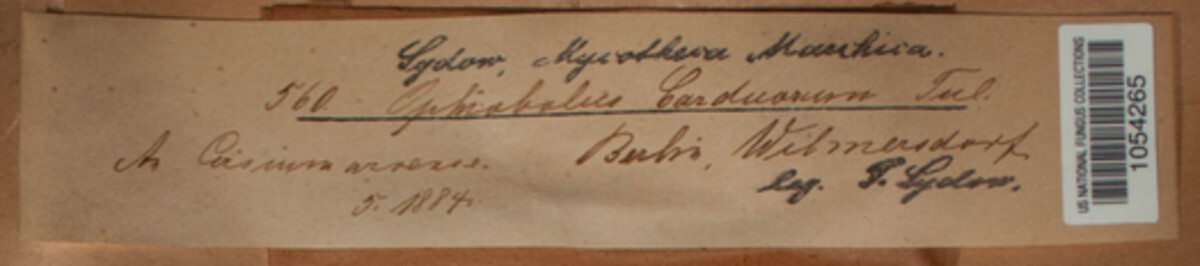 Sydow, Mycotheca Marchica.
560. Ophiobolus Carduorum Tul.
A Cirsium arvense. Berlin, Wilmersdorf
5. 1884. leg. P. Sydow.
US NATIONAL FUNGUS COLLECTIONS
1054265